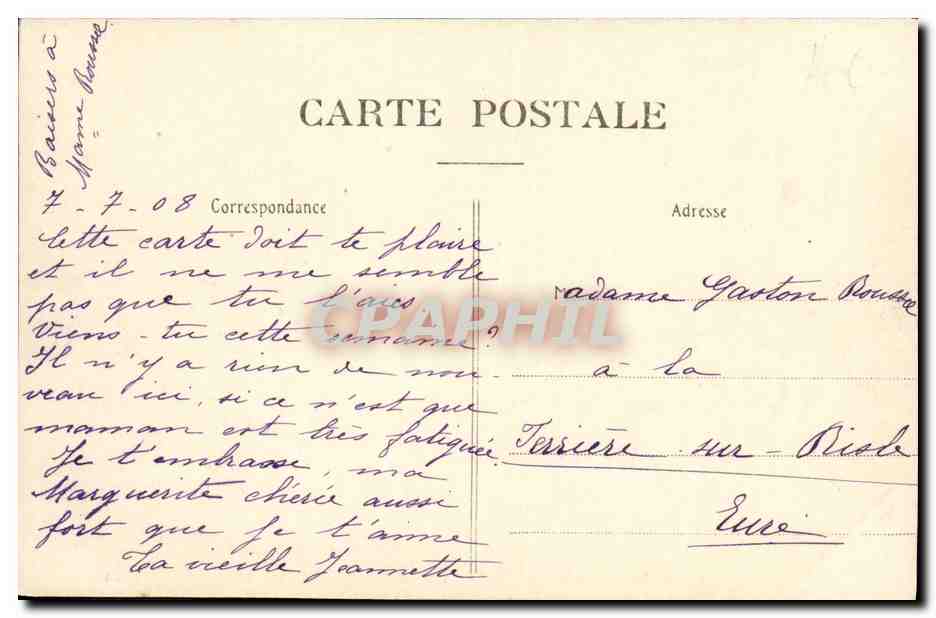 Baisers à
Mame Rousse
CARTE POSTALE
7-7-08 Correspondance
Adresse
Cette carte doit te plaire
et il ne me semble
pas que tu l'aies
Viens-tu cette semaine?
Il n'y a rien de nou-
veau ici, si ce n'est que
maman est très fatiguée.
Je t'embrasse, ma
Marguerite chérie aussi
fort que je t'aime
Ta vieille Jeannette
Madame Gaston
à la
Ferrière sur-Risle
Eure
CPAPHIL